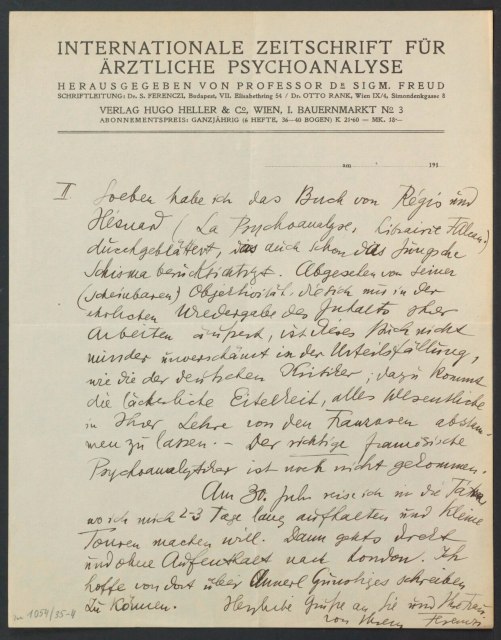 INTERNATIONALE ZEITSCHRIFT FÜR
ÄRZTLICHE PSYCHOANALYSE
HERAUSGEGEBEN VON PROFESSOR DR SIGM. FREUD
SCHRIFTLEITUNG: Dr. S. FERENCZI, Budapest, VII. Elisabethring 54 / Dr. OTTO RANK, Wien IX/4, Simondenkgasse 8
VERLAG HUGO HELLER & Co, WIEN, I. BAUERNMARKT No 3
ABONNEMENTSPREIS: GANZJÄHRIG (6 HEFTE, 36—40 BOGEN) K 21·60 — MK. 18·—
am 191
II Soeben habe ich das Buch von Régis und
Hésnard (La Psychoanalyse, Librairie Alcan)
durchgeblättert, das auch schon das Jungsche
Schisma berücksichtigt. Abgesehen von seiner
(scheinbaren) Objektivität, die sich nur in der
ehrlichen Wiedergabe des Inhalts Ihrer
Arbeiten äussert, ist dieses Buch nicht
minder unverschämt in der Urteilsfällung,
wie die der deutschen Kritiker; dazu kommt
die lächerliche Eitelkeit, alles Wesentliche
in Ihrer Lehre von den Franzosen abstam-
men zu lassen. — Der richtige französische
Psychoanalytiker ist noch nicht gekommen.
Am 30. reise ich in die Tátra
wo ich mich 2-3 Tage lang aufhalten und kleine
Touren machen will. Dann gehts direkt
und ohne Aufenthalt nach London. Ich
hoffe von dort über Annerl Günstiges schreiben
zu können. Herzliche Grüße an Sie und
von Ihrem Ferenczi
1054/35-4